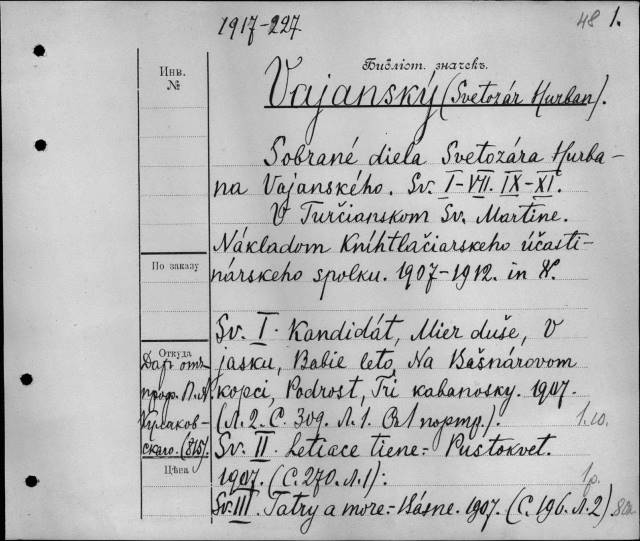 1917-227
48 1.
Инв.
№
Библіот. значекъ.
Vajanský (Svetozár Hurban).
Sobrané diela Svetozára Hurba-
na Vajanského. Sv. I-VII. IX-XI.
V Turčianskom Sv. Martine.
Nákladom Kníhtlačiarskeho účasti-
nárskeho spolku. 1907-1912. in 8.
По заказу
Sv. I. Kandidát, Mier duše, V
jasku, Babie leto, Na Bašnárovom
kopci, Podrost, Tri kabanosky. 1907.
(Л. 2. С. 309. Л. 1. Съ 1 портр.). 1.10.
Откуда
Даръ отъ
проф. П. А.
Кулаков-
скаго. (815).
Цѣна
Sv. II. Letiace tiene.- Pustokvet.
1907. (С. 270. Л. 1). 1р.
Sv. III. Tatry a more.- Básne. 1907. (С. 196. Л. 2).